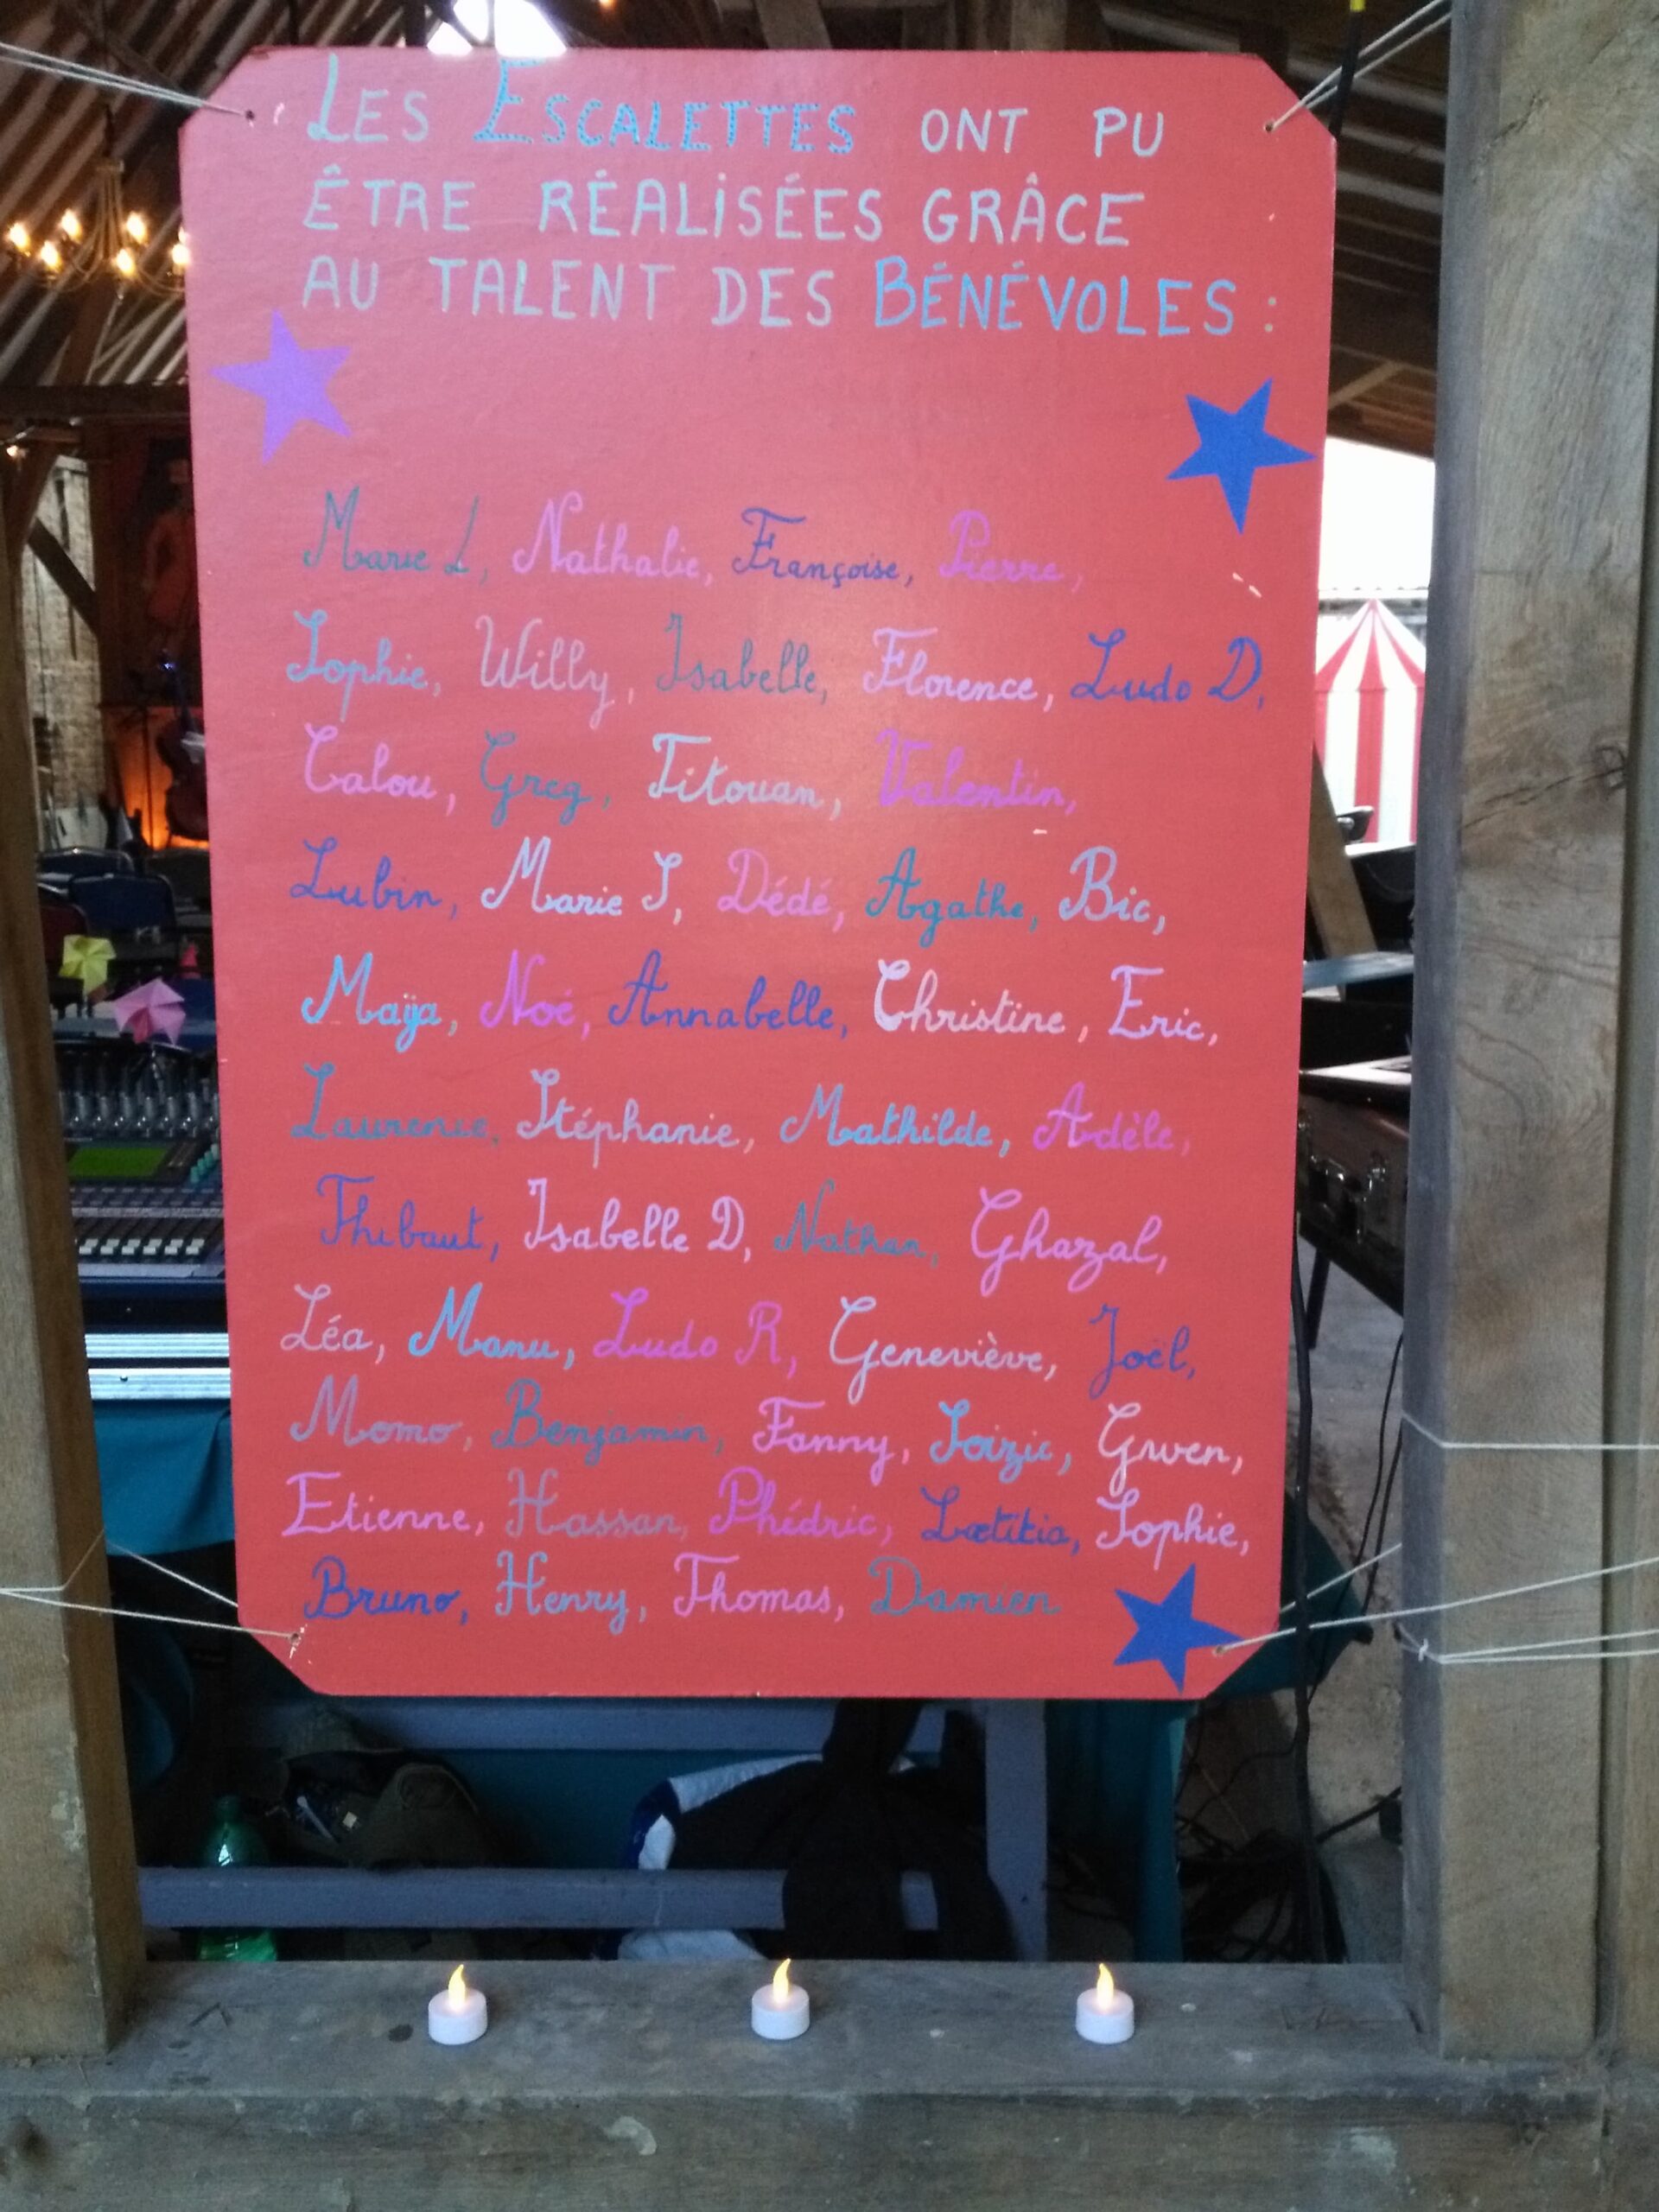 LES ESCALETTES ONT PU
ÊTRE RÉALISÉES GRÂCE
AU TALENT DES BÉNÉVOLES :
Marie L, Nathalie, Françoise, Pierre,
Sophie, Willy, Isabelle, Florence, Ludo D,
Calou, Greg, Titouan, Valentin,
Lubin, Marie S, Dédé, Agathe, Bic,
Maïja, Noé, Annabelle, Christine, Eric,
Laurence, Stéphanie, Mathilde, Adèle,
Thibaut, Isabelle D, Nathan, Ghazal,
Léa, Manu, Ludo R, Geneviève, Joël,
Momo, Benjamin, Fanny, Soizic, Gwen,
Etienne, Hassan, Phédric, Lætitia, Sophie,
Bruno, Henry, Thomas, Damien